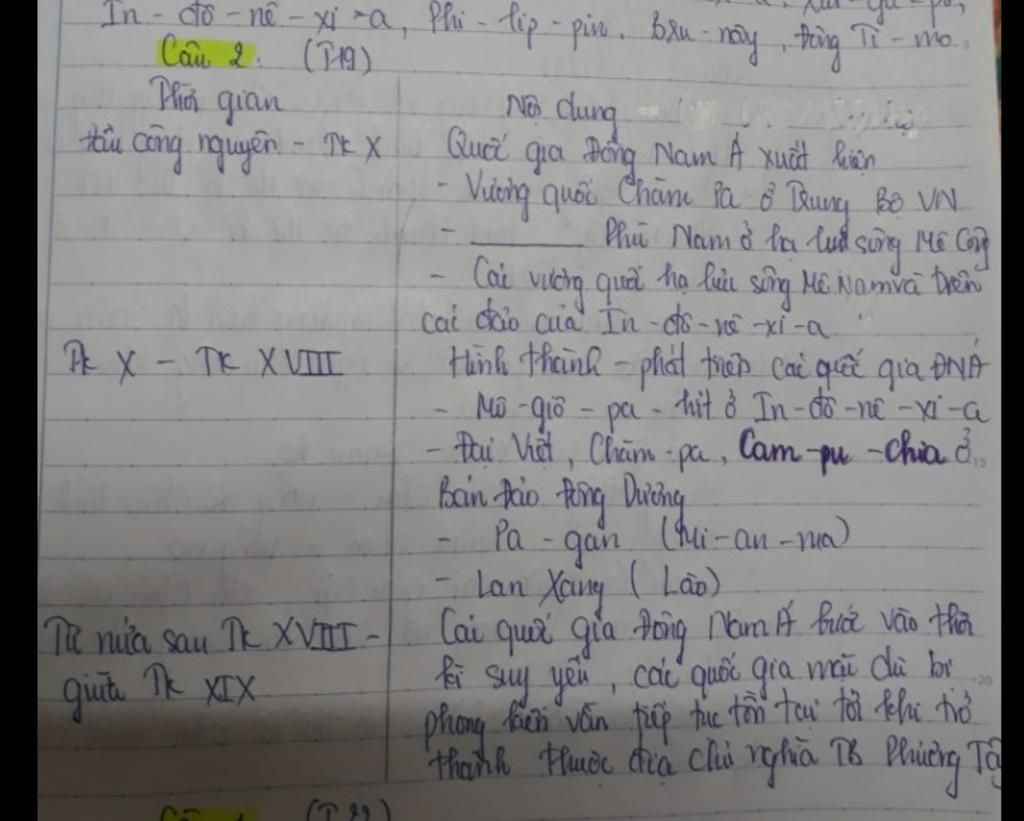 In - đô - nê - xi - a, Phi - lip - pin. Bru - nây, Đông Ti - mo.
Câu 2: (T19)
Thời gian Nội dung
đầu công nguyên - TK X Quốc gia Đông Nam Á xuất hiện
- Vương quốc Chăm Pa ở Trung Bộ VN
- ______ Phù Nam ở hạ lưu sông Mê Công
- Các vương quốc hạ lưu sông Mê Nam và trên
các đảo của In - đô - nê - xi - a
TK X - TK XVIII Hình thành - phát triển các quốc gia ĐNÁ
- Mô - giô - pa - hit ở In - đô - nê - xi - a
- Đại Việt, Chăm - pa, Cam - pu - chia ở
Bán đảo Đông Dương
- Pa - gan (Mi - an - ma)
- Lan Xang (Lào)
Từ nửa sau TK XVIII - Các quốc gia Đông Nam Á bước vào thời
giữa TK XIX kì suy yếu, các quốc gia mặc dù bị
phong kiến vẫn tiếp tục tồn tại tới khi trở
thành thuộc địa chủ nghĩa TB Phương Tây